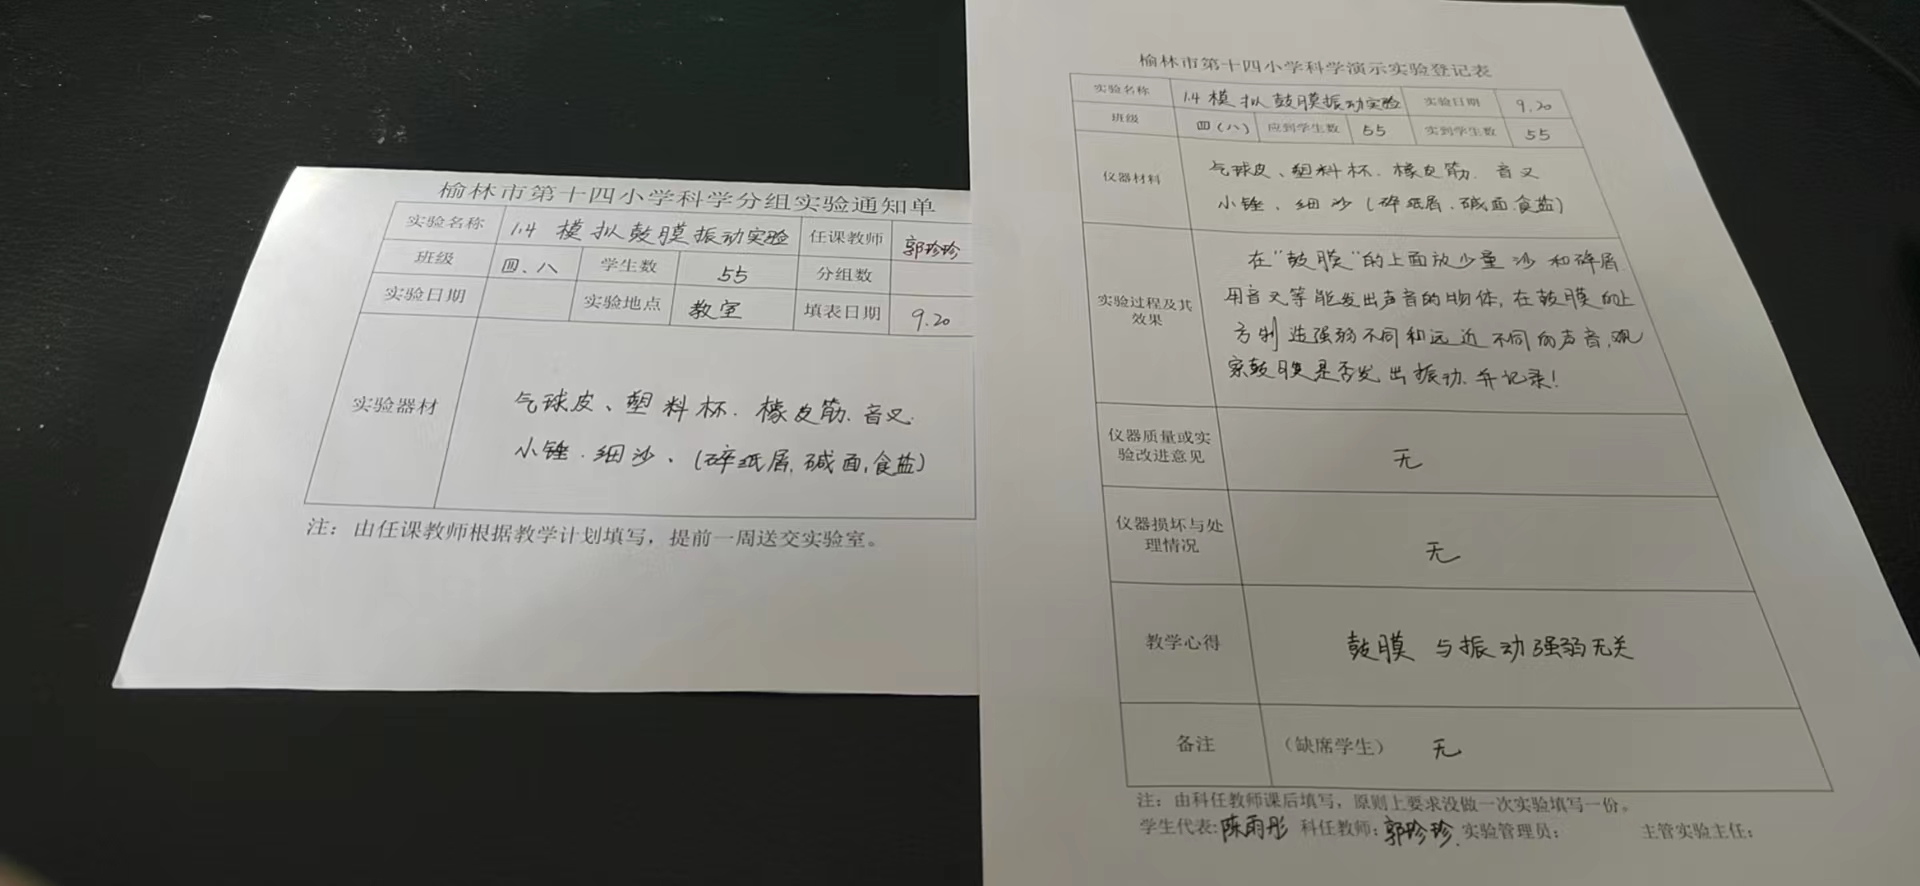 榆林市第十四小学科学分组实验通知单
实验名称 1.4 模拟鼓膜振动实验 任课教师 郭珍珍
班级 四、八 学生数 55 分组数
实验日期 实验地点 教室 填表日期 9.20
实验器材
气球皮、塑料杯、橡皮筋、音叉
小锤、细沙、(碎纸屑,碱面,食盐)
注：由任课教师根据教学计划填写，提前一周送交实验室。
榆林市第十四小学科学演示实验登记表
实验名称 1.4 模拟鼓膜振动实验 实验日期 9.20
班级 四(八) 应到学生数 55 实到学生数 55
仪器材料
气球皮、塑料杯、橡皮筋、音叉
小锤、细沙(碎纸屑、碱面,食盐)
实验过程及其
效果
在“鼓膜”的上面放少量沙和碎屑
用音叉等能发出声音的物体,在鼓膜的上
方制造强弱不同和远近不同的声音,观
察鼓膜是否发出振动,并记录!
仪器质量或实
验改进意见
无
仪器损坏与处
理情况
无
教学心得
鼓膜与振动强弱无关
备注 （缺席学生） 无
注：由科任教师课后填写，原则上要求没做一次实验填写一份。
学生代表:陈雨彤 科任教师:郭珍珍 实验管理员: 主管实验主任: